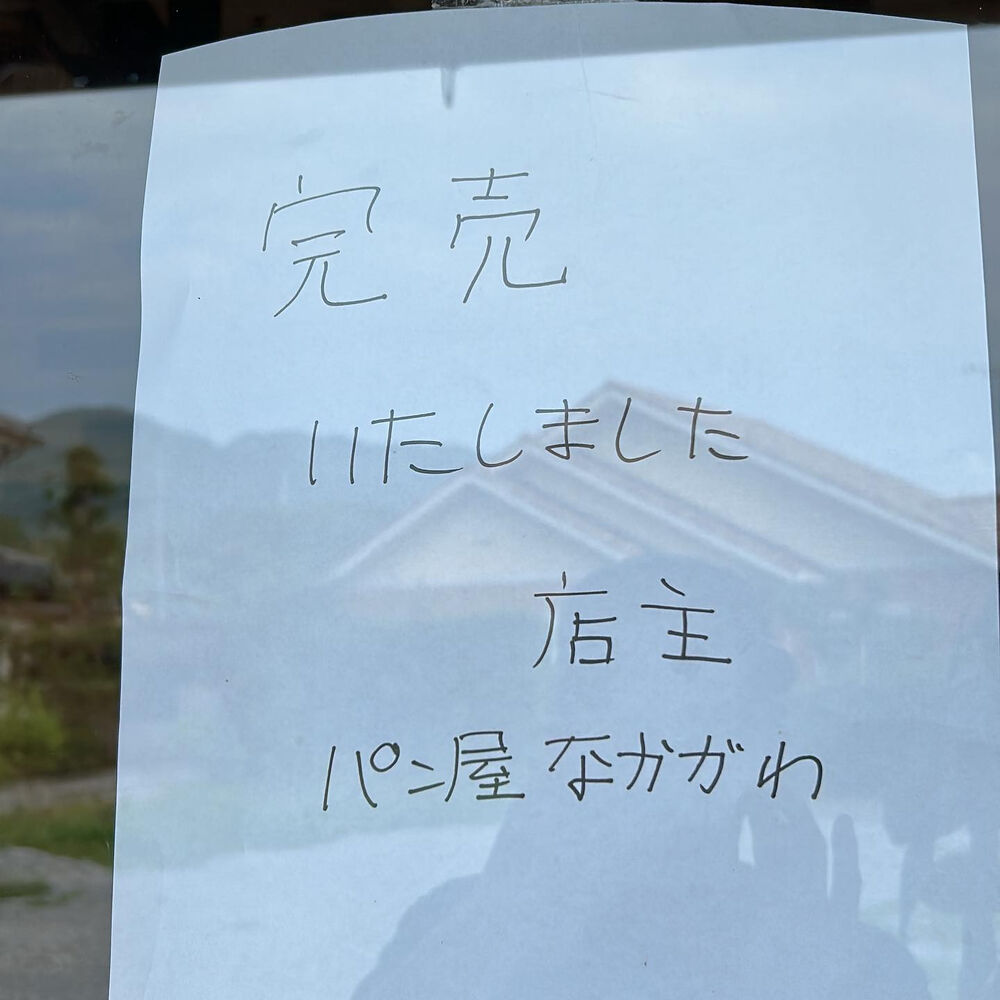 完売
いたしました
店主
パン屋 なかがわ